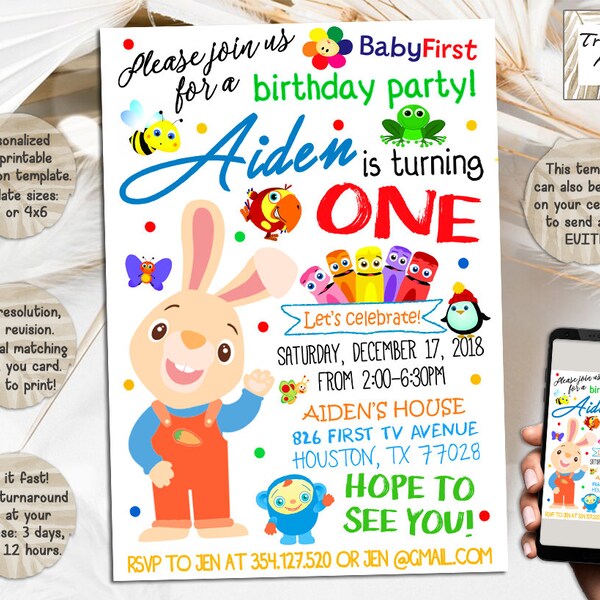 Please join us
for a
BabyFirst
birthday party!
Aiden
is turning
ONE
Let's celebrate!
SATURDAY, DECEMBER 17, 2018
FROM 2:00-6:30PM
AIDEN'S HOUSE
826 FIRST TV AVENUE
HOUSTON, TX 77028
HOPE TO
SEE YOU!
RSVP TO JEN AT 354.127.520 OR JEN @GMAIL.COM
printable
template.
sizes:
or 4x6
resolution,
revision.
matching
you card.
to print!
it fast!
turnaround
at your
3 days,
12 hours.
This
can also be
on your
to send
EVITE
Please join us
for a